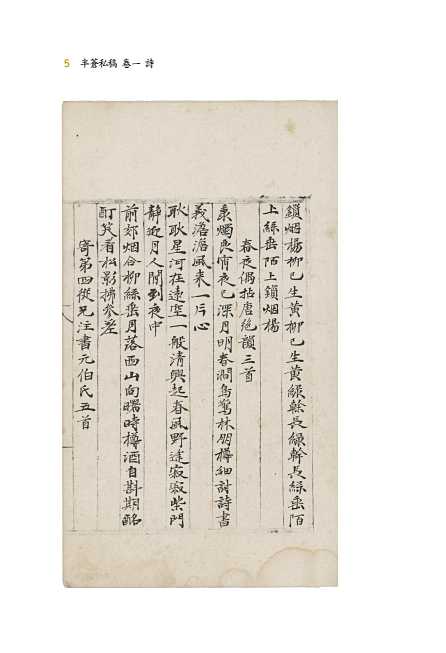 5 半蒼私稿 卷一 詩
鎖烟楊柳已生黃柳已生黃綠幹長綠幹長絲垂陌
上絲垂陌上鎖烟楊
春夜偶拈唐絶韻三首
秉燭良宵夜已深月明春澗鳥驚林朋樽細討詩書
義澹澹風來一片心
耿耿星河在遠空一般清興起春風野逕寂寂柴門
靜近月人閒到夜中
前郊烟合柳絲垂月落西山向曙時樽酒自斟期酩
酊笑看松影拂參差
寄第四從兄注書元伯氏五首